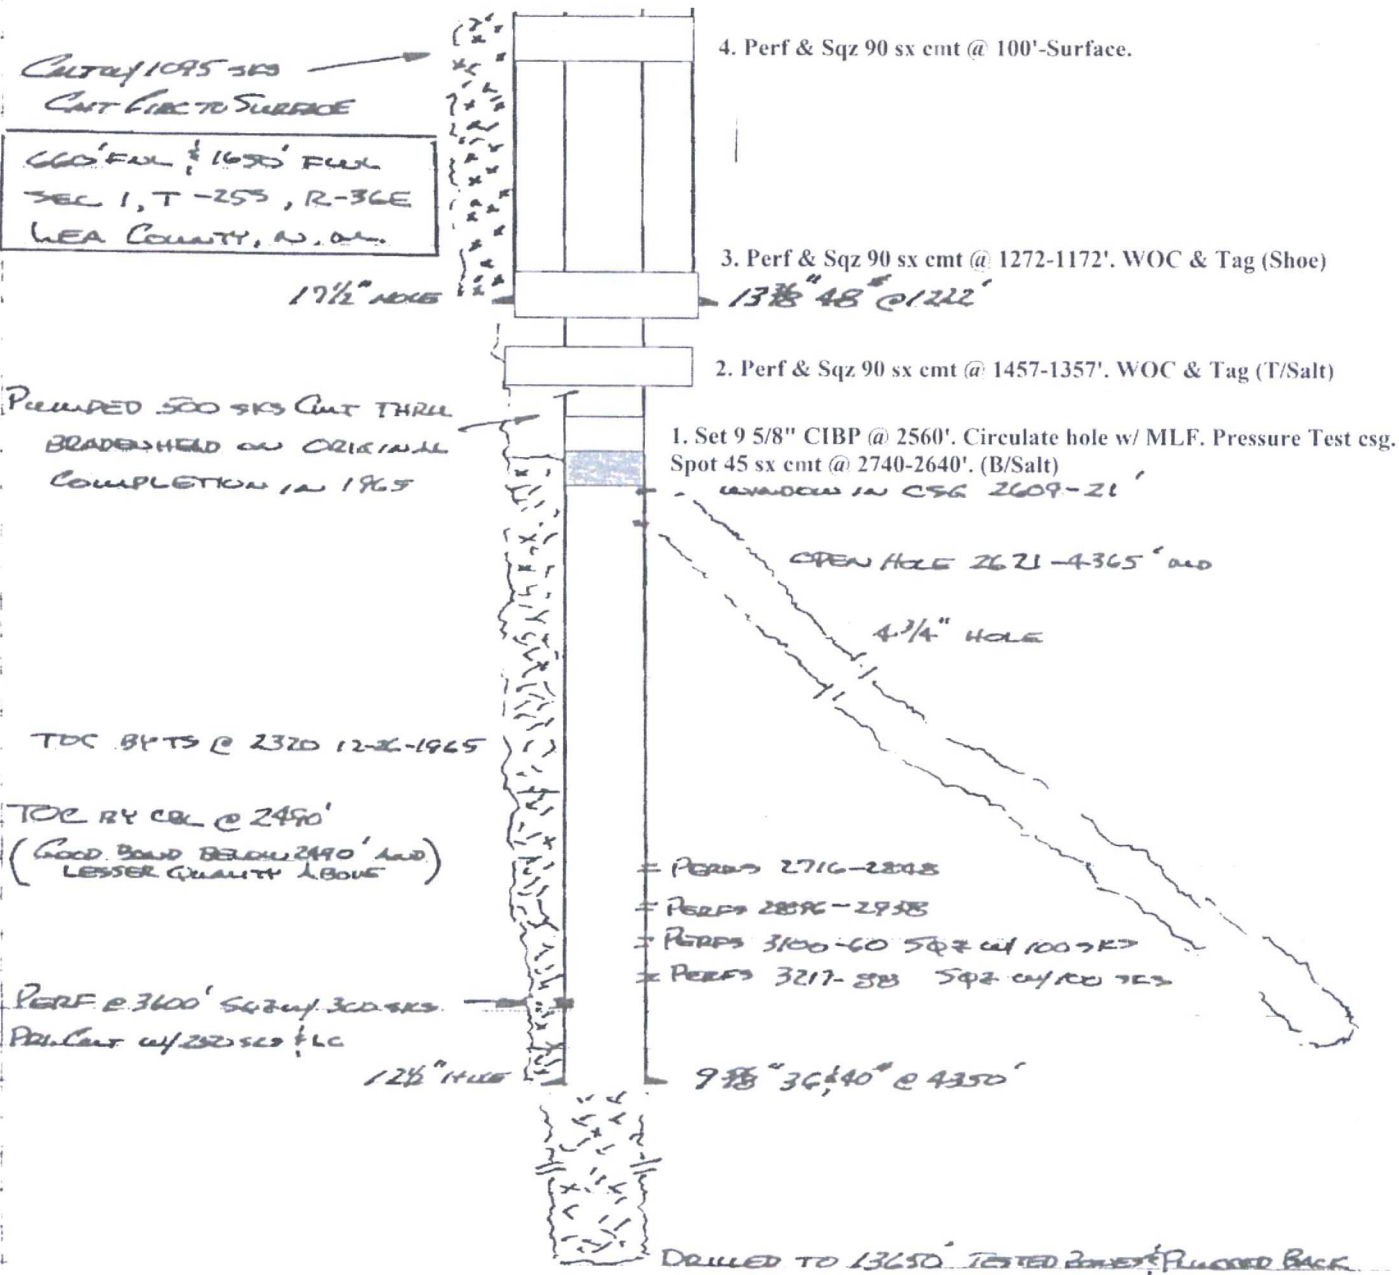 4. Perf & Sqz 90 sx cmt @ 100'-Surface.
1095 SKS
CMT CIRC TO SURFACE
660' FNL & 1650' FWL
SEC 1, T-25S, R-36E
LEA COUNTY, N.M.
3. Perf & Sqz 90 sx cmt @ 1272-1172'. WOC & Tag (Shoe)
17 1/2" HOLE
13 3/8" 48# @ 1222'
2. Perf & Sqz 90 sx cmt @ 1457-1357'. WOC & Tag (T/Salt)
PUMPED 500 SKS CMT THRU
BRADENHEAD ON ORIGINAL
COMPLETION IN 1965
1. Set 9 5/8" CIBP @ 2560'. Circulate hole w/ MLF. Pressure Test csg.
Spot 45 sx cmt @ 2740-2640'. (B/Salt)
WINDOW IN CSG 2609-21'
OPEN HOLE 2621-4365' MD
4 3/4" HOLE
TOC BY TS @ 2320 12-26-1965
TOC BY CBL @ 2490'
(GOOD BOND BELOW 2490' AND
LESSER QUALITY ABOVE)
PERFS 2716-2848
PERFS
PERFS 3100-60 SQZ W/ 100 SKS
PERFS 3217-88 SQZ W/ 100 SKS
PERF @ 3600' SQZ W/ 300 SKS
12 1/2" HOLE
9 5/8" 36 & 40# @ 4350'
DRILLED TO 13650' TESTED ZONES & PLUGGED BACK